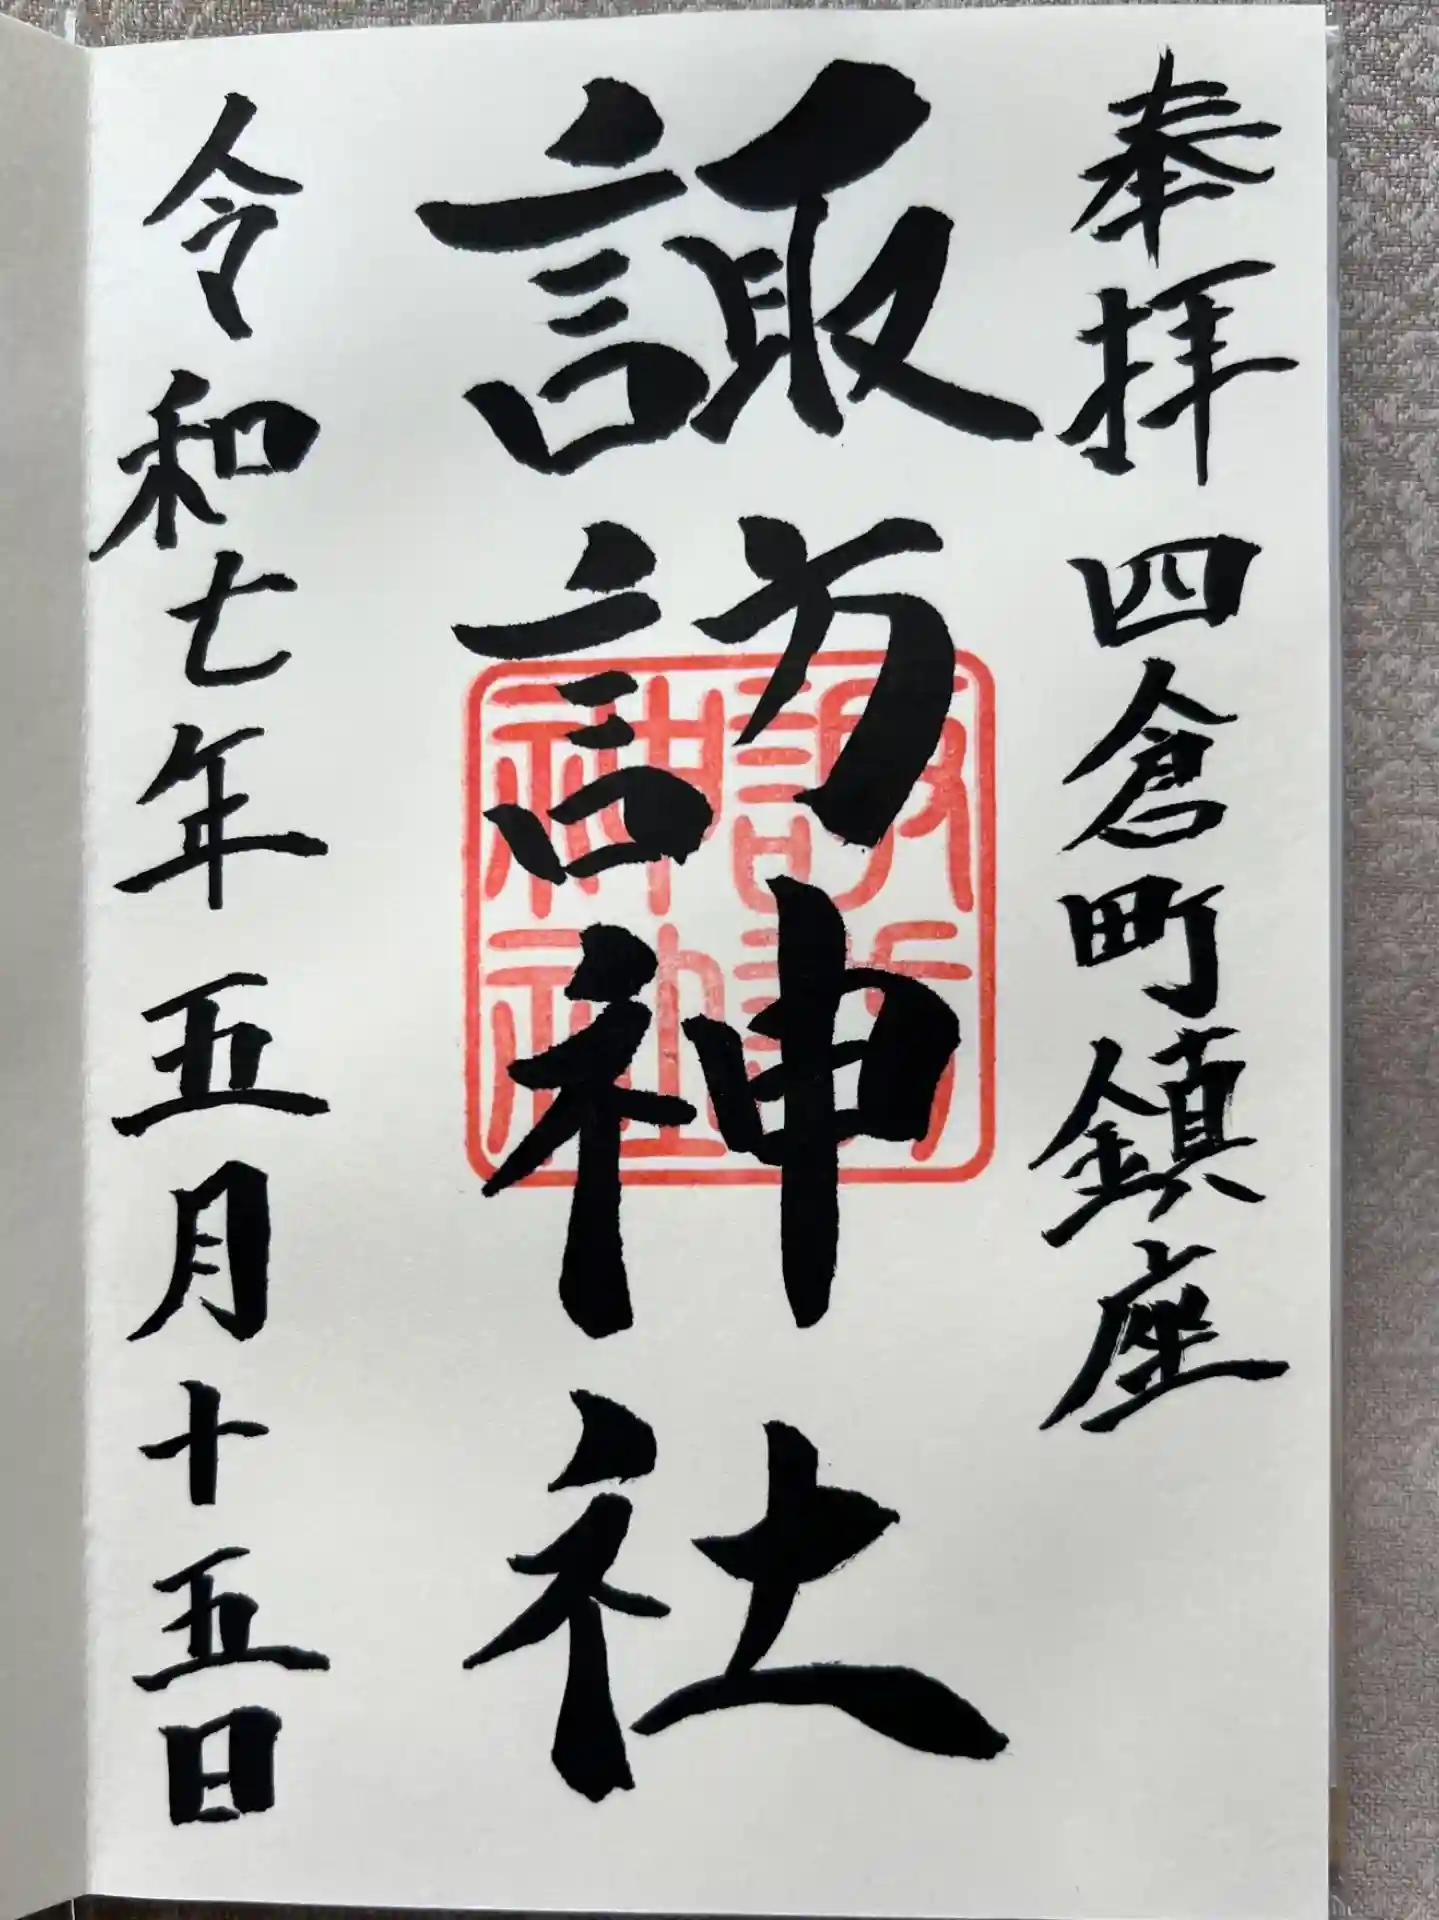 奉拝 四倉町鎮座
諏訪神社
諏訪神社
令和七年 五月十五日